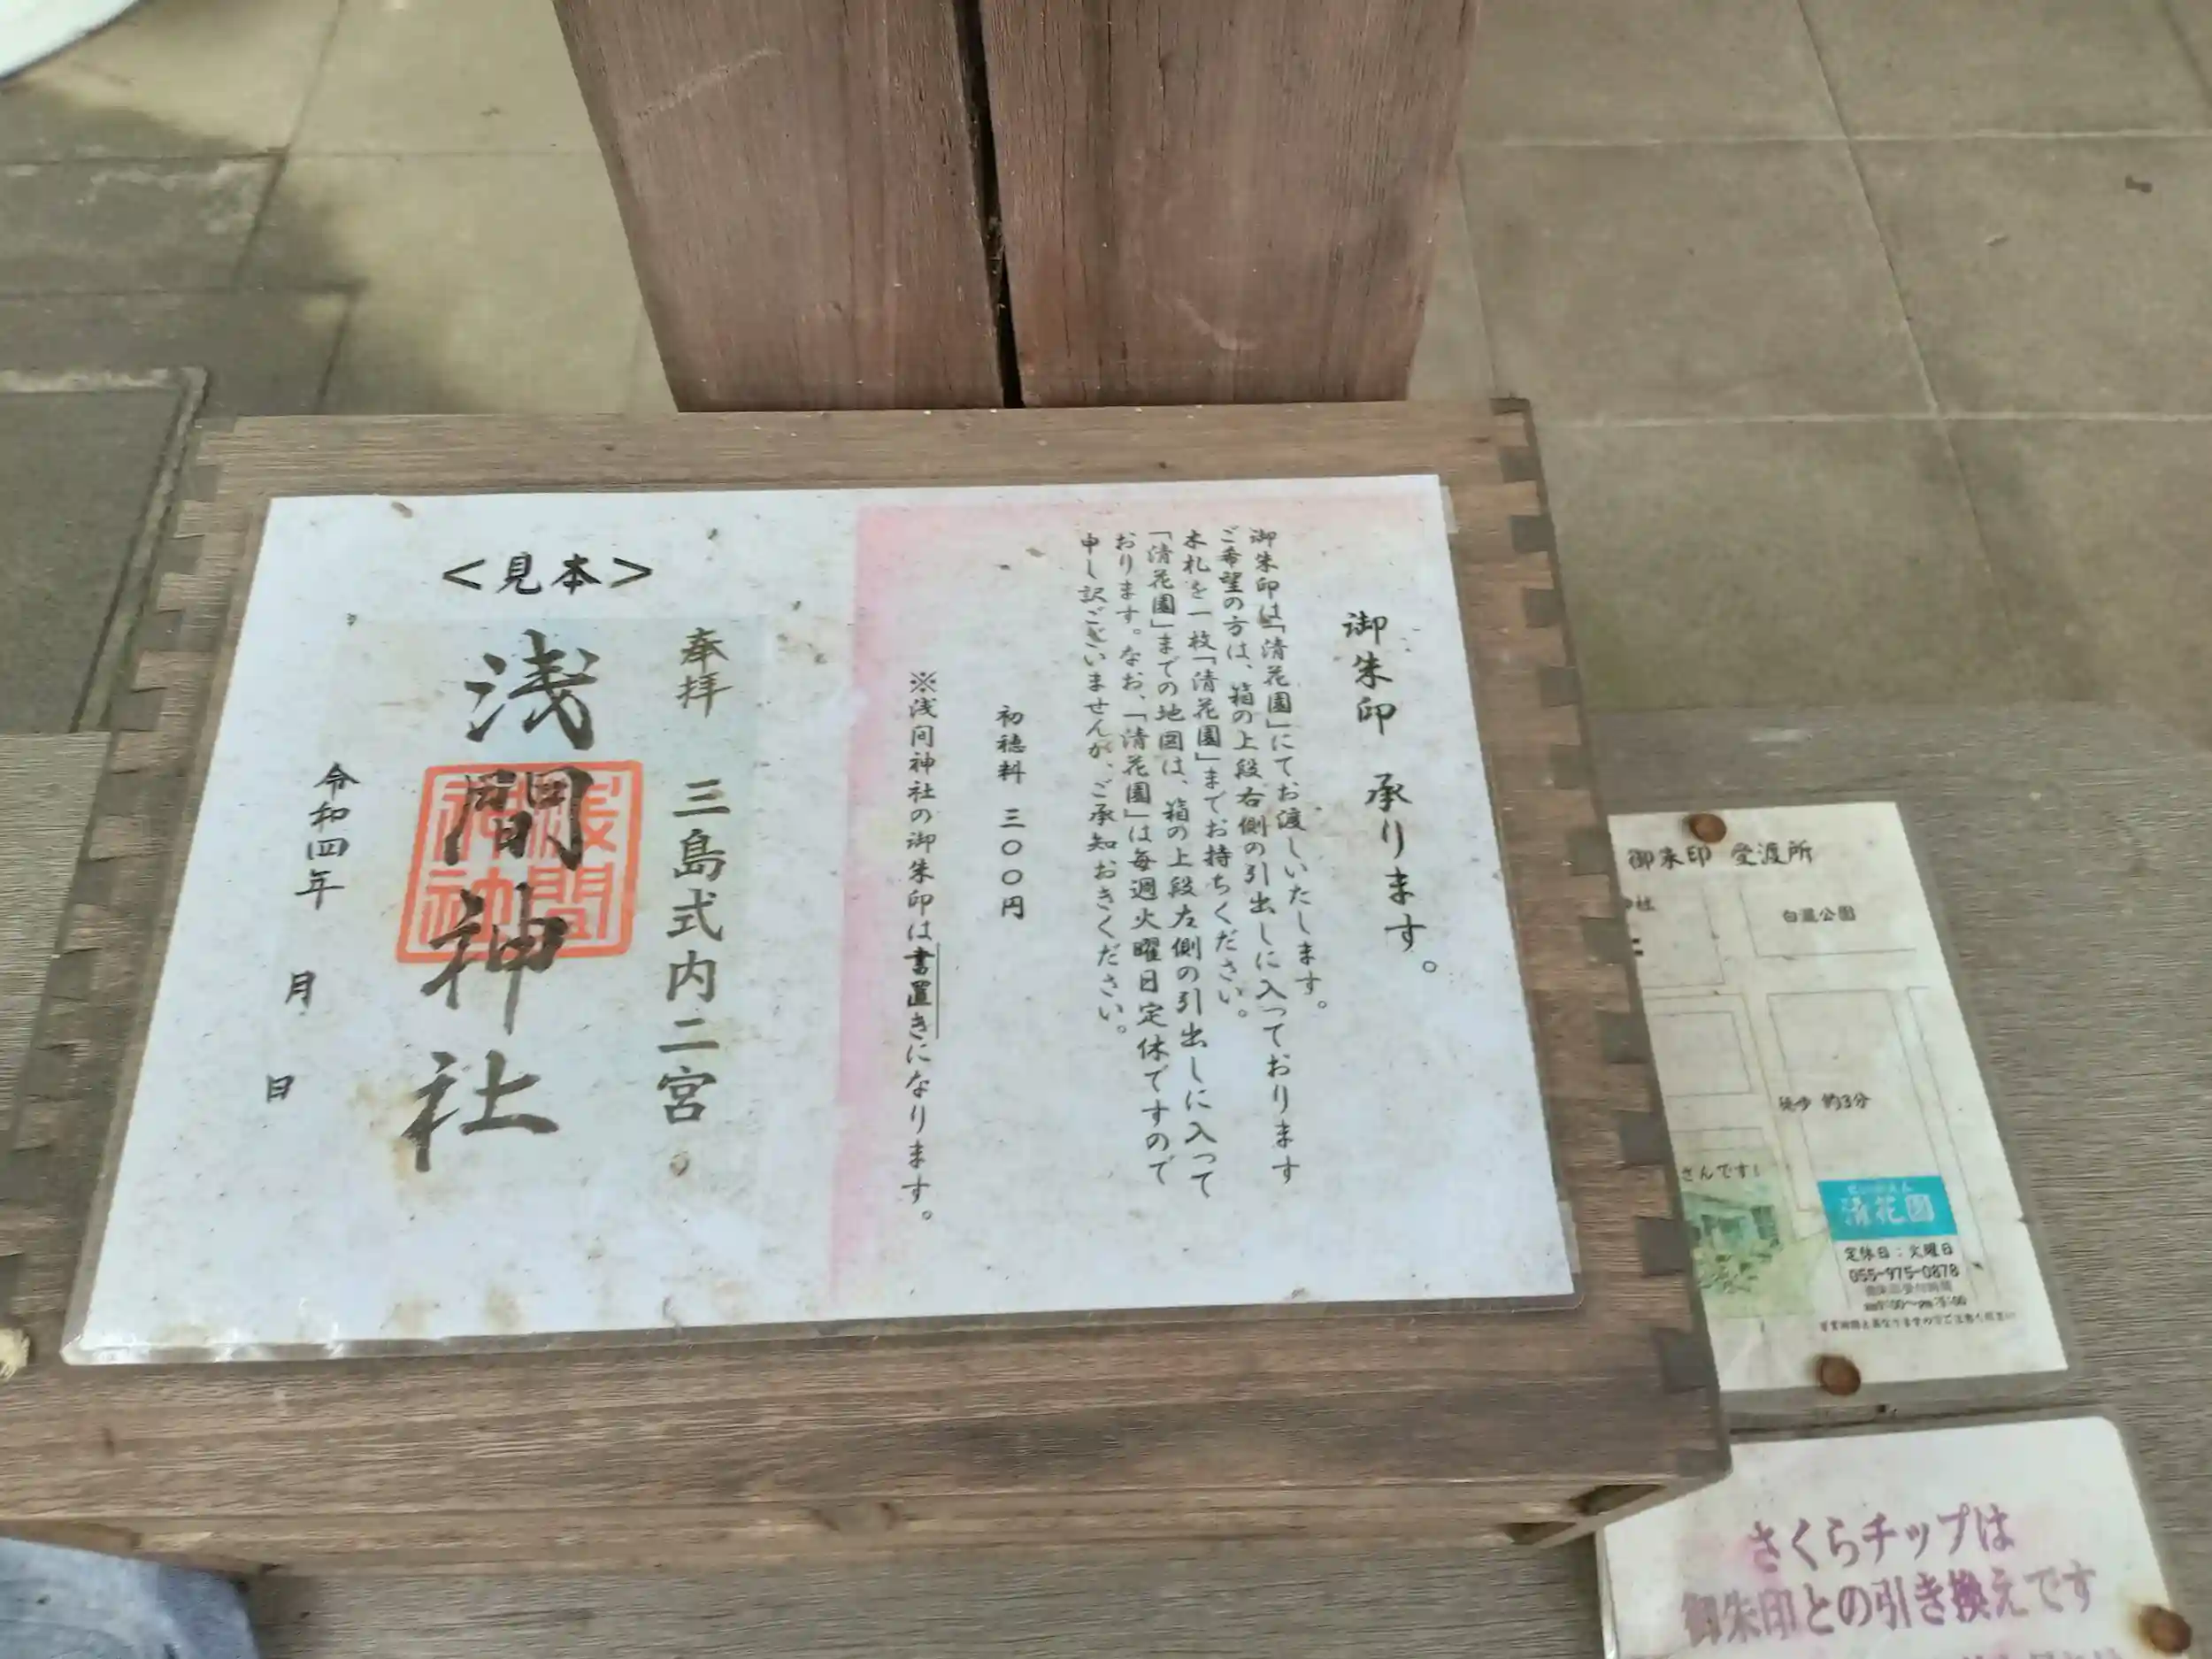 御朱印 承ります。
御朱印は「清花園」にてお渡しいたします。
ご希望の方は、箱の上段右側の引出しに入っております
木札を一枚「清花園」までお持ちください。
「清花園」までの地図は、箱の上段左側の引出しに入って
おります。なお、「清花園」は毎週火曜日定休ですので
申し訳ございませんが、ご承知おきください。
初穂料 三〇〇円
※浅间神社の御朱印は書置きになります。
<見本>
奉拝 三島式内二宮
浅間神社
令和四年 月 日
御朱印 受渡所
社
白滝公園
徒歩 約3分
さんです!
せいかえん
清花園
定休日:火曜日
055-975-0878
さくらチップは
御朱印との引き換えです